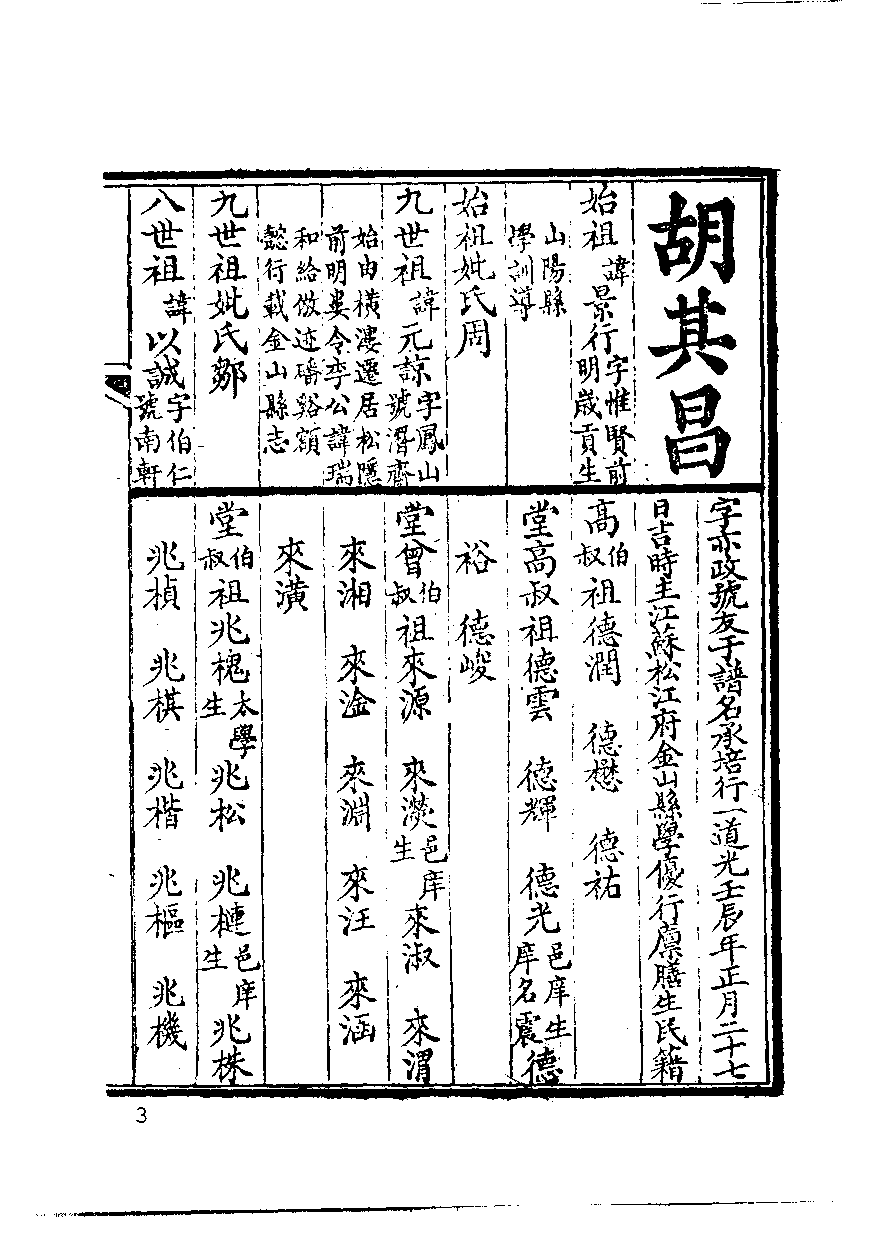 胡其昌
字亦政號友于譜名承培行一道光壬辰年正月二十七
日吉時生江蘇松江府金山縣學優行廩膳生民籍
始祖諱景行字惟賢前明歲貢生
山陽縣學訓導
始祖妣氏周
九世祖諱元諒字鳳山號潛齋
始由橫漊遷居松隱前明婁令李公諱瑞
和給倣迹磻谿額懿行載金山縣志
九世祖妣氏鄒
八世祖諱以誠字伯仁號南軒
高伯叔祖德潤 德懋 德祐
堂高叔祖德雲 德輝 德光邑庠生庠名震德
裕 德峻
堂曾伯叔祖來源 來濙邑庠生來淑 來渭
來湘 來淦 來淵 來汪 來涵
來潢
堂伯叔祖兆槐太學生兆松 兆槤邑庠生兆株
兆楨 兆棋 兆楷 兆樞 兆機
3